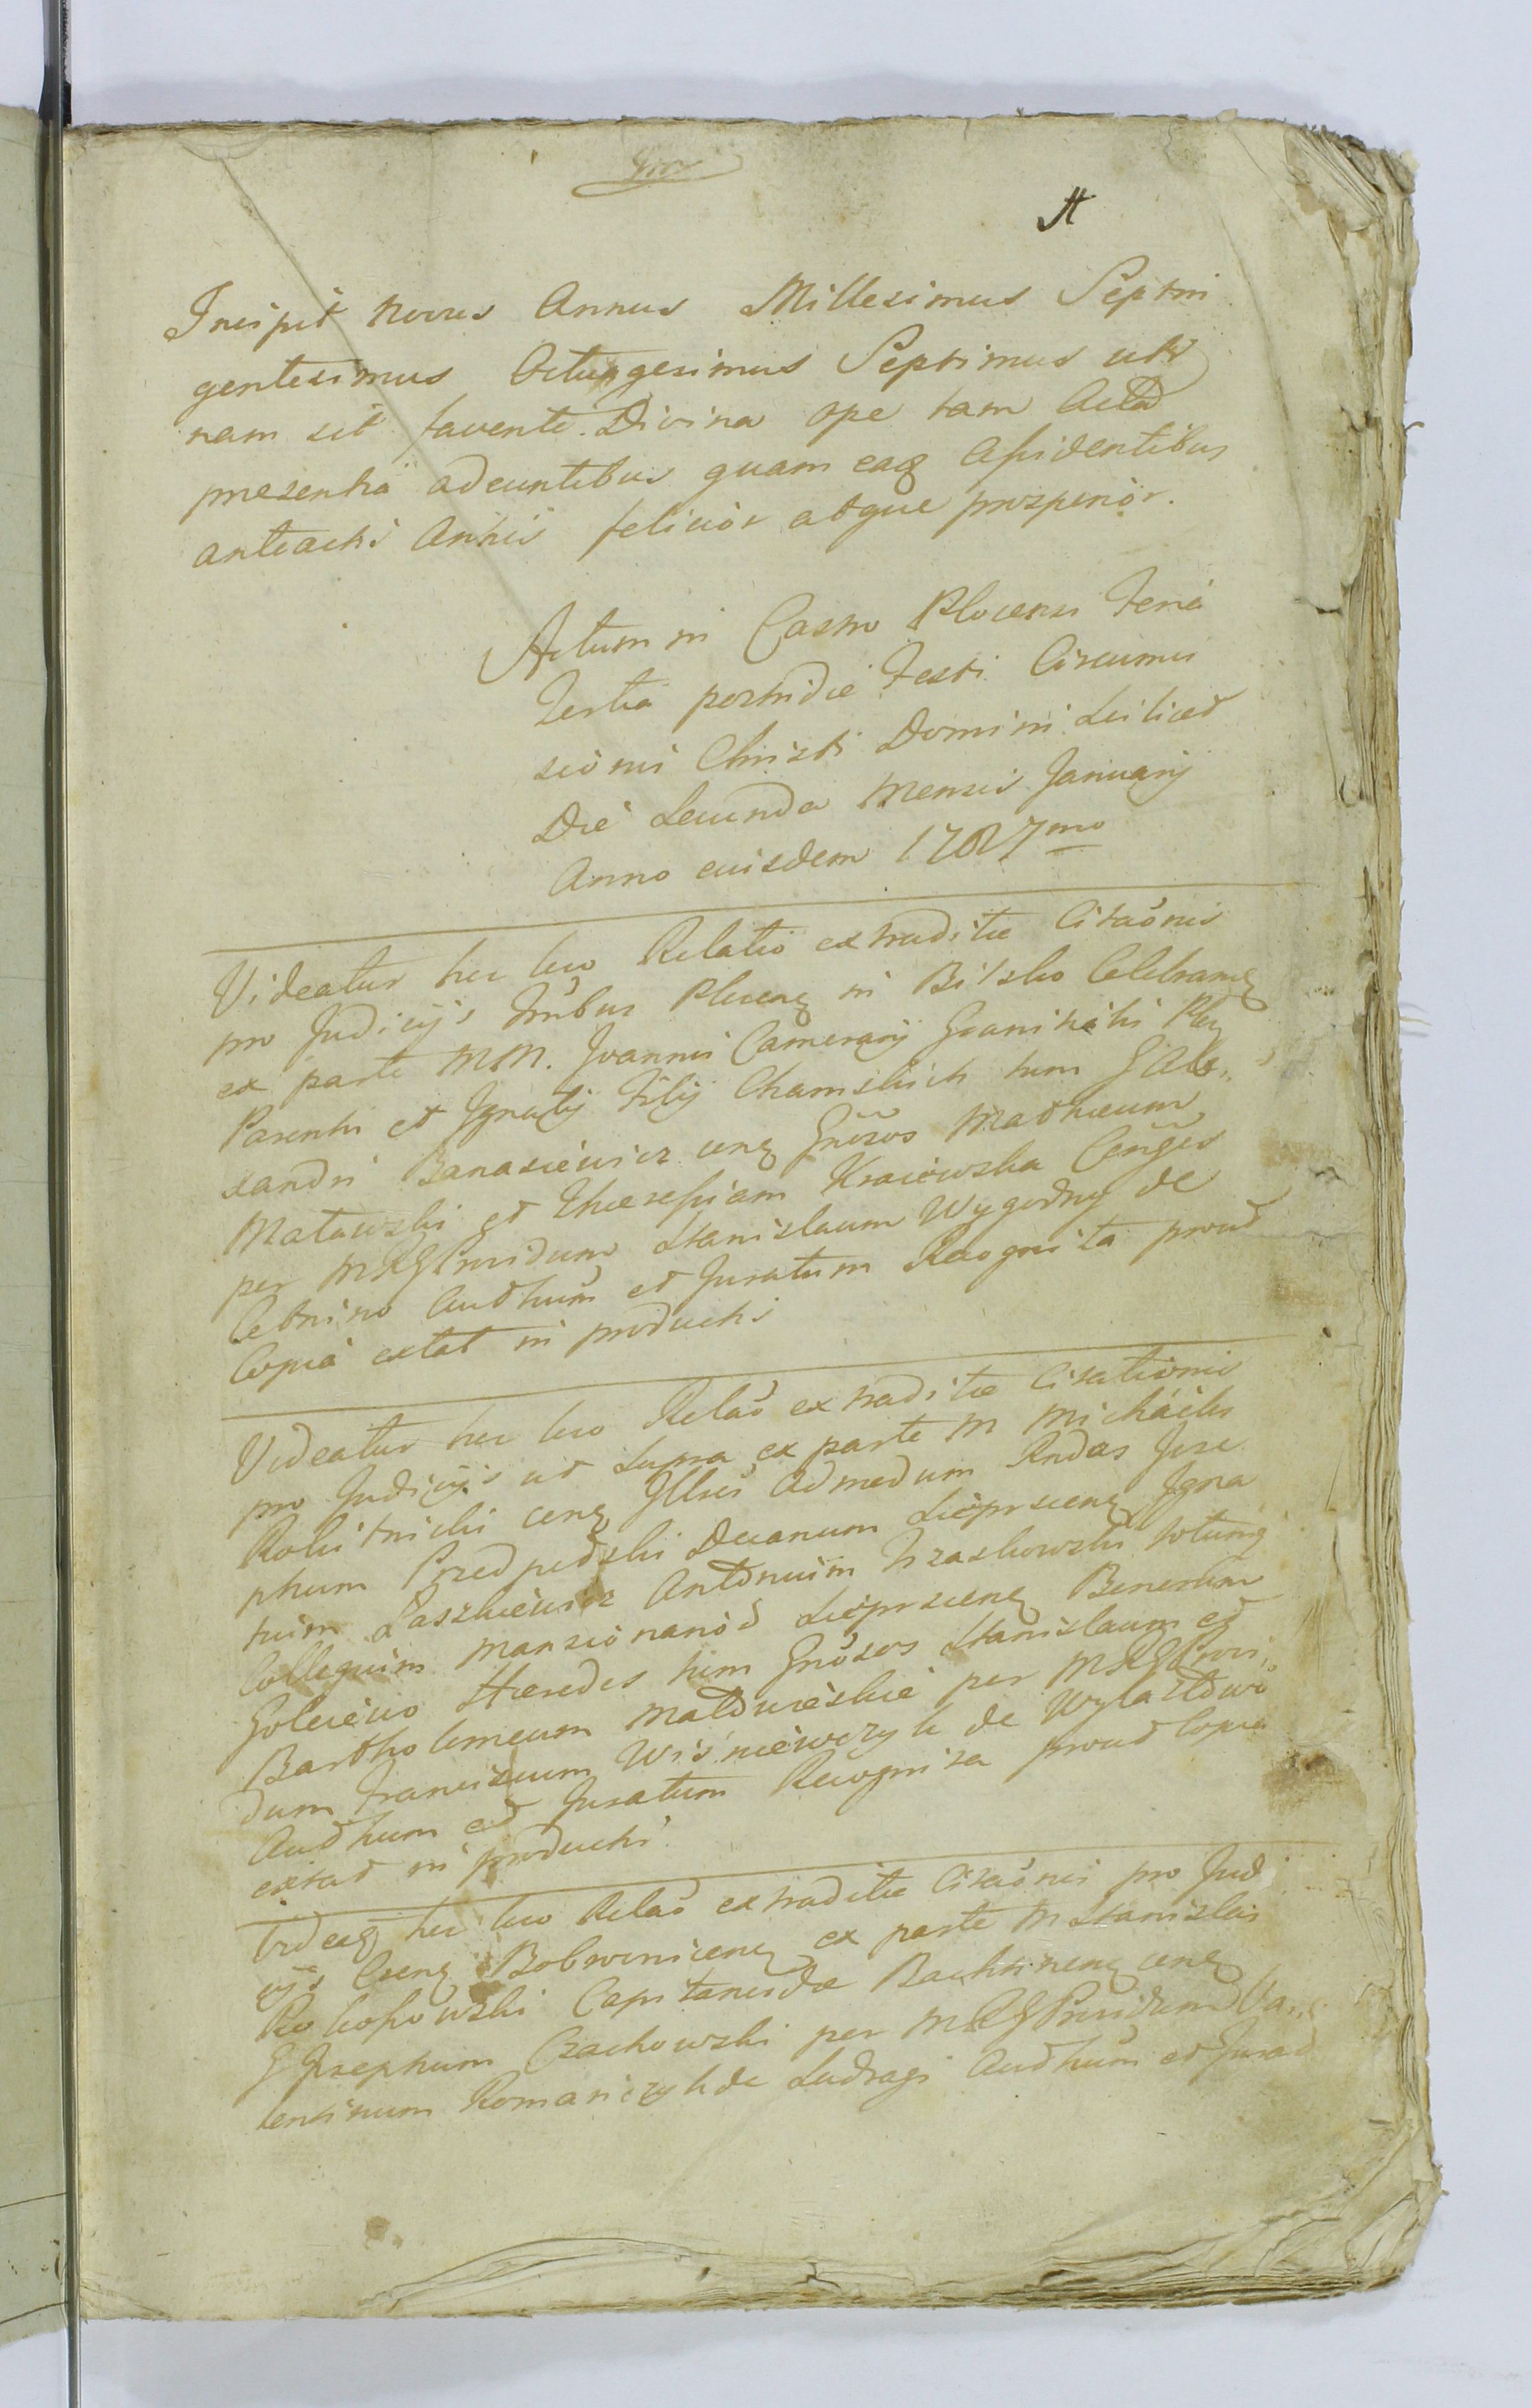 A
Incipit novus Annus Millesimus Septin
gentesimus Octuagesimus Septimus uti
nam sit favente Divina ope tam Acta
presentia adeuntibus quam eaq Assidentibus
anteacti Annis felicior atque prosperior.
Actum in Castro Plocensi Feria
Tertia postridie Festi Circumci
sionis Christi Domini scilicet
Die Secunda Mensis Januarij
Anno eiusdem 1787mo
Videatur hic loco Relatio extraditæ Citaõnis
pro Judicijs Plocenq in Bilsko Celebranq
ex parte MM. Joannis Camerarij Granicialis Ploc
Parentis et Ignatij Filij Chamskich tum G Ale
xandri Banasiewicz cenq Gnosos Mathæum
Matowski et Theresiam Kraiewska Coniuges
per MRGPnvidum Stanislaum Wygodny de
Cetnino Authum et Juratum Recognita prout
Copia extat in productis
Videatur hic loco Relaõ extraditæ Citationis
pro Judicijs ut supra ex parte M Michaelis
Rokitnicki cenq Illres Admodum Rndos Jose
phum Przedpełski Decanum Sieprscenq Igna
tium Laszkiewicz Antonium Traskowski totumq
Collegium Mansionariõ Sieprscenq Bonorum
Golciewo Hæredes tum Gnõsos Stanislaum et
Bartholomeum per MRGProvi
dum Franciscum Wisniewczyk de Wylazłowo
Authum et Juratum Recognita prout Copia
extat in productis
Videaq hic loco Relaõ extraditæ Citaõnis pro Jud
cijs Cenq Bobrownicenq ex parte M Stanislai
Rokossowski Capitaneidæ cenq
G Josephum Czachowski per MRGPnvidum Va
lentinum Romanczyk de Sudragi Authum et Jurat